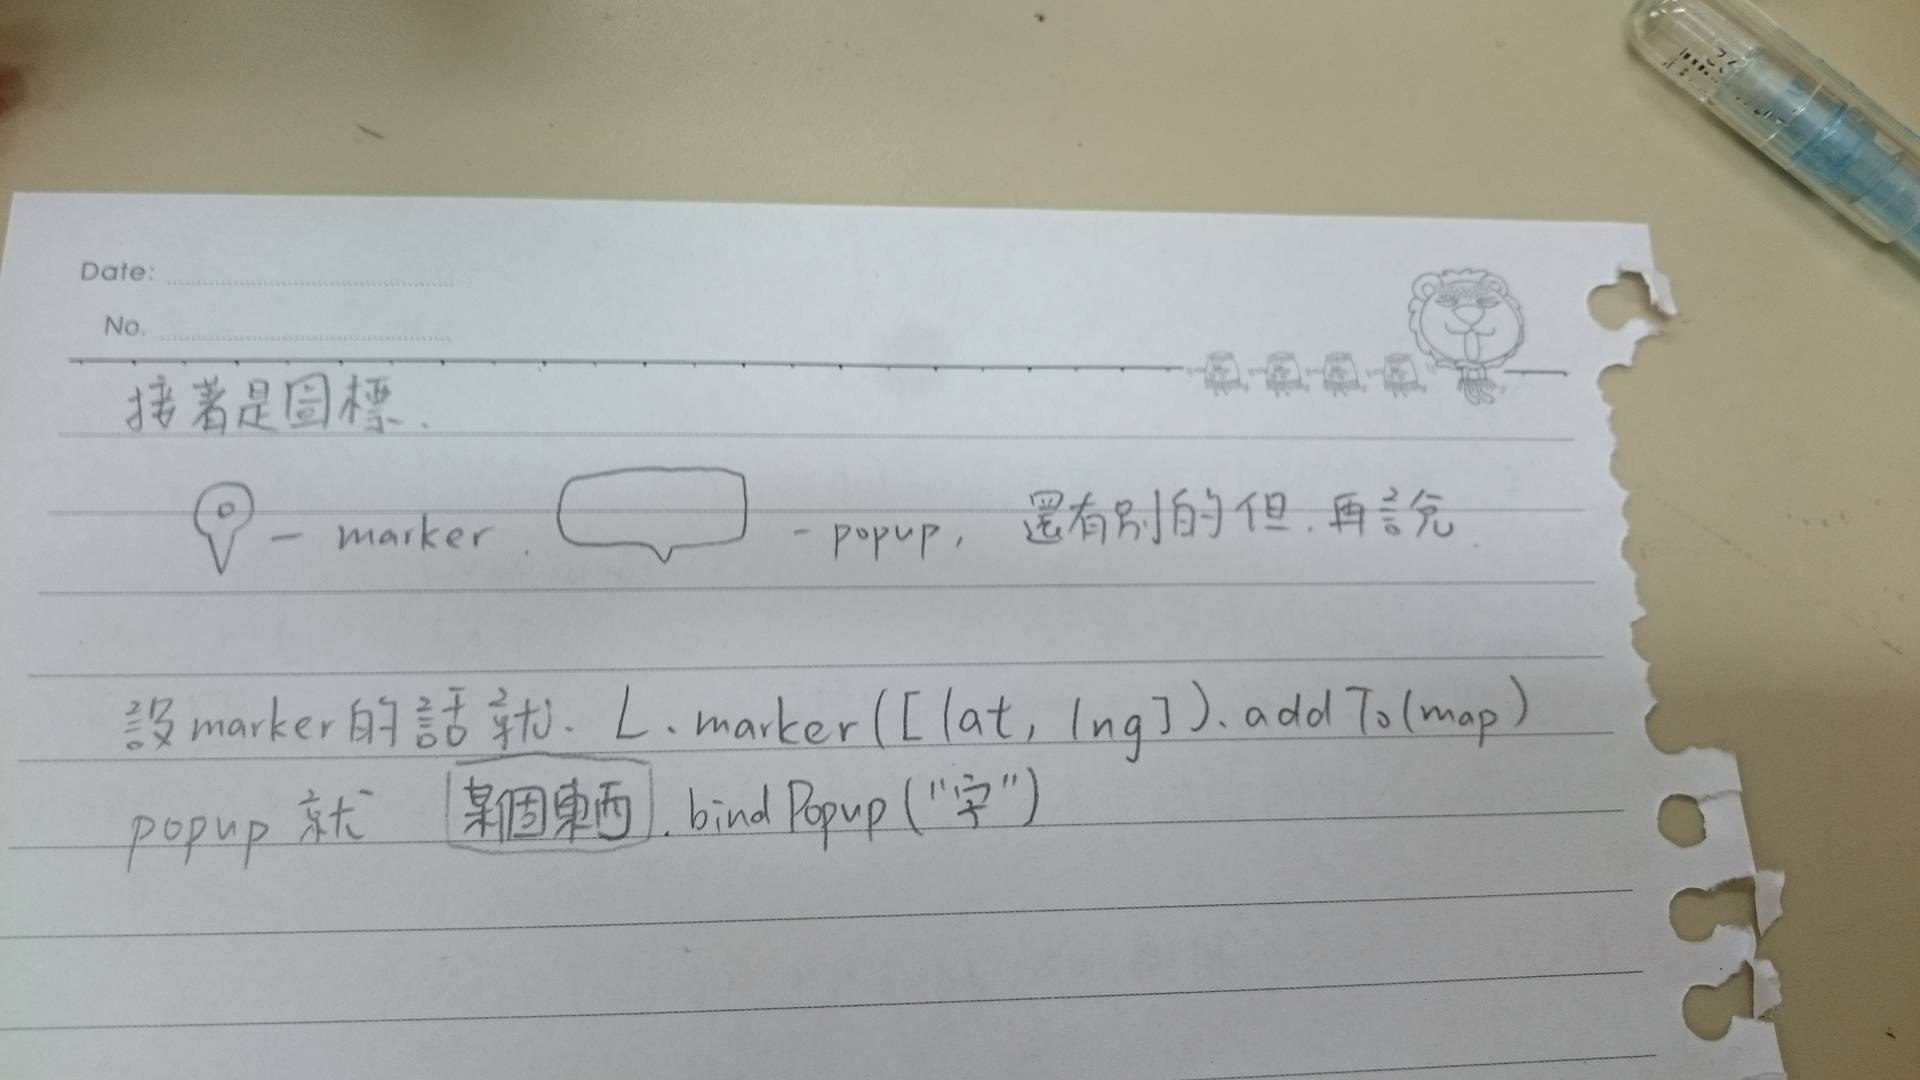 Date:
No.
接著是圖標.
- marker. - popup, 還有別的但.再說.
設marker的話就. L.marker([lat, lng]).addTo(map)
popup 就 某個東西.bindPopup("字")